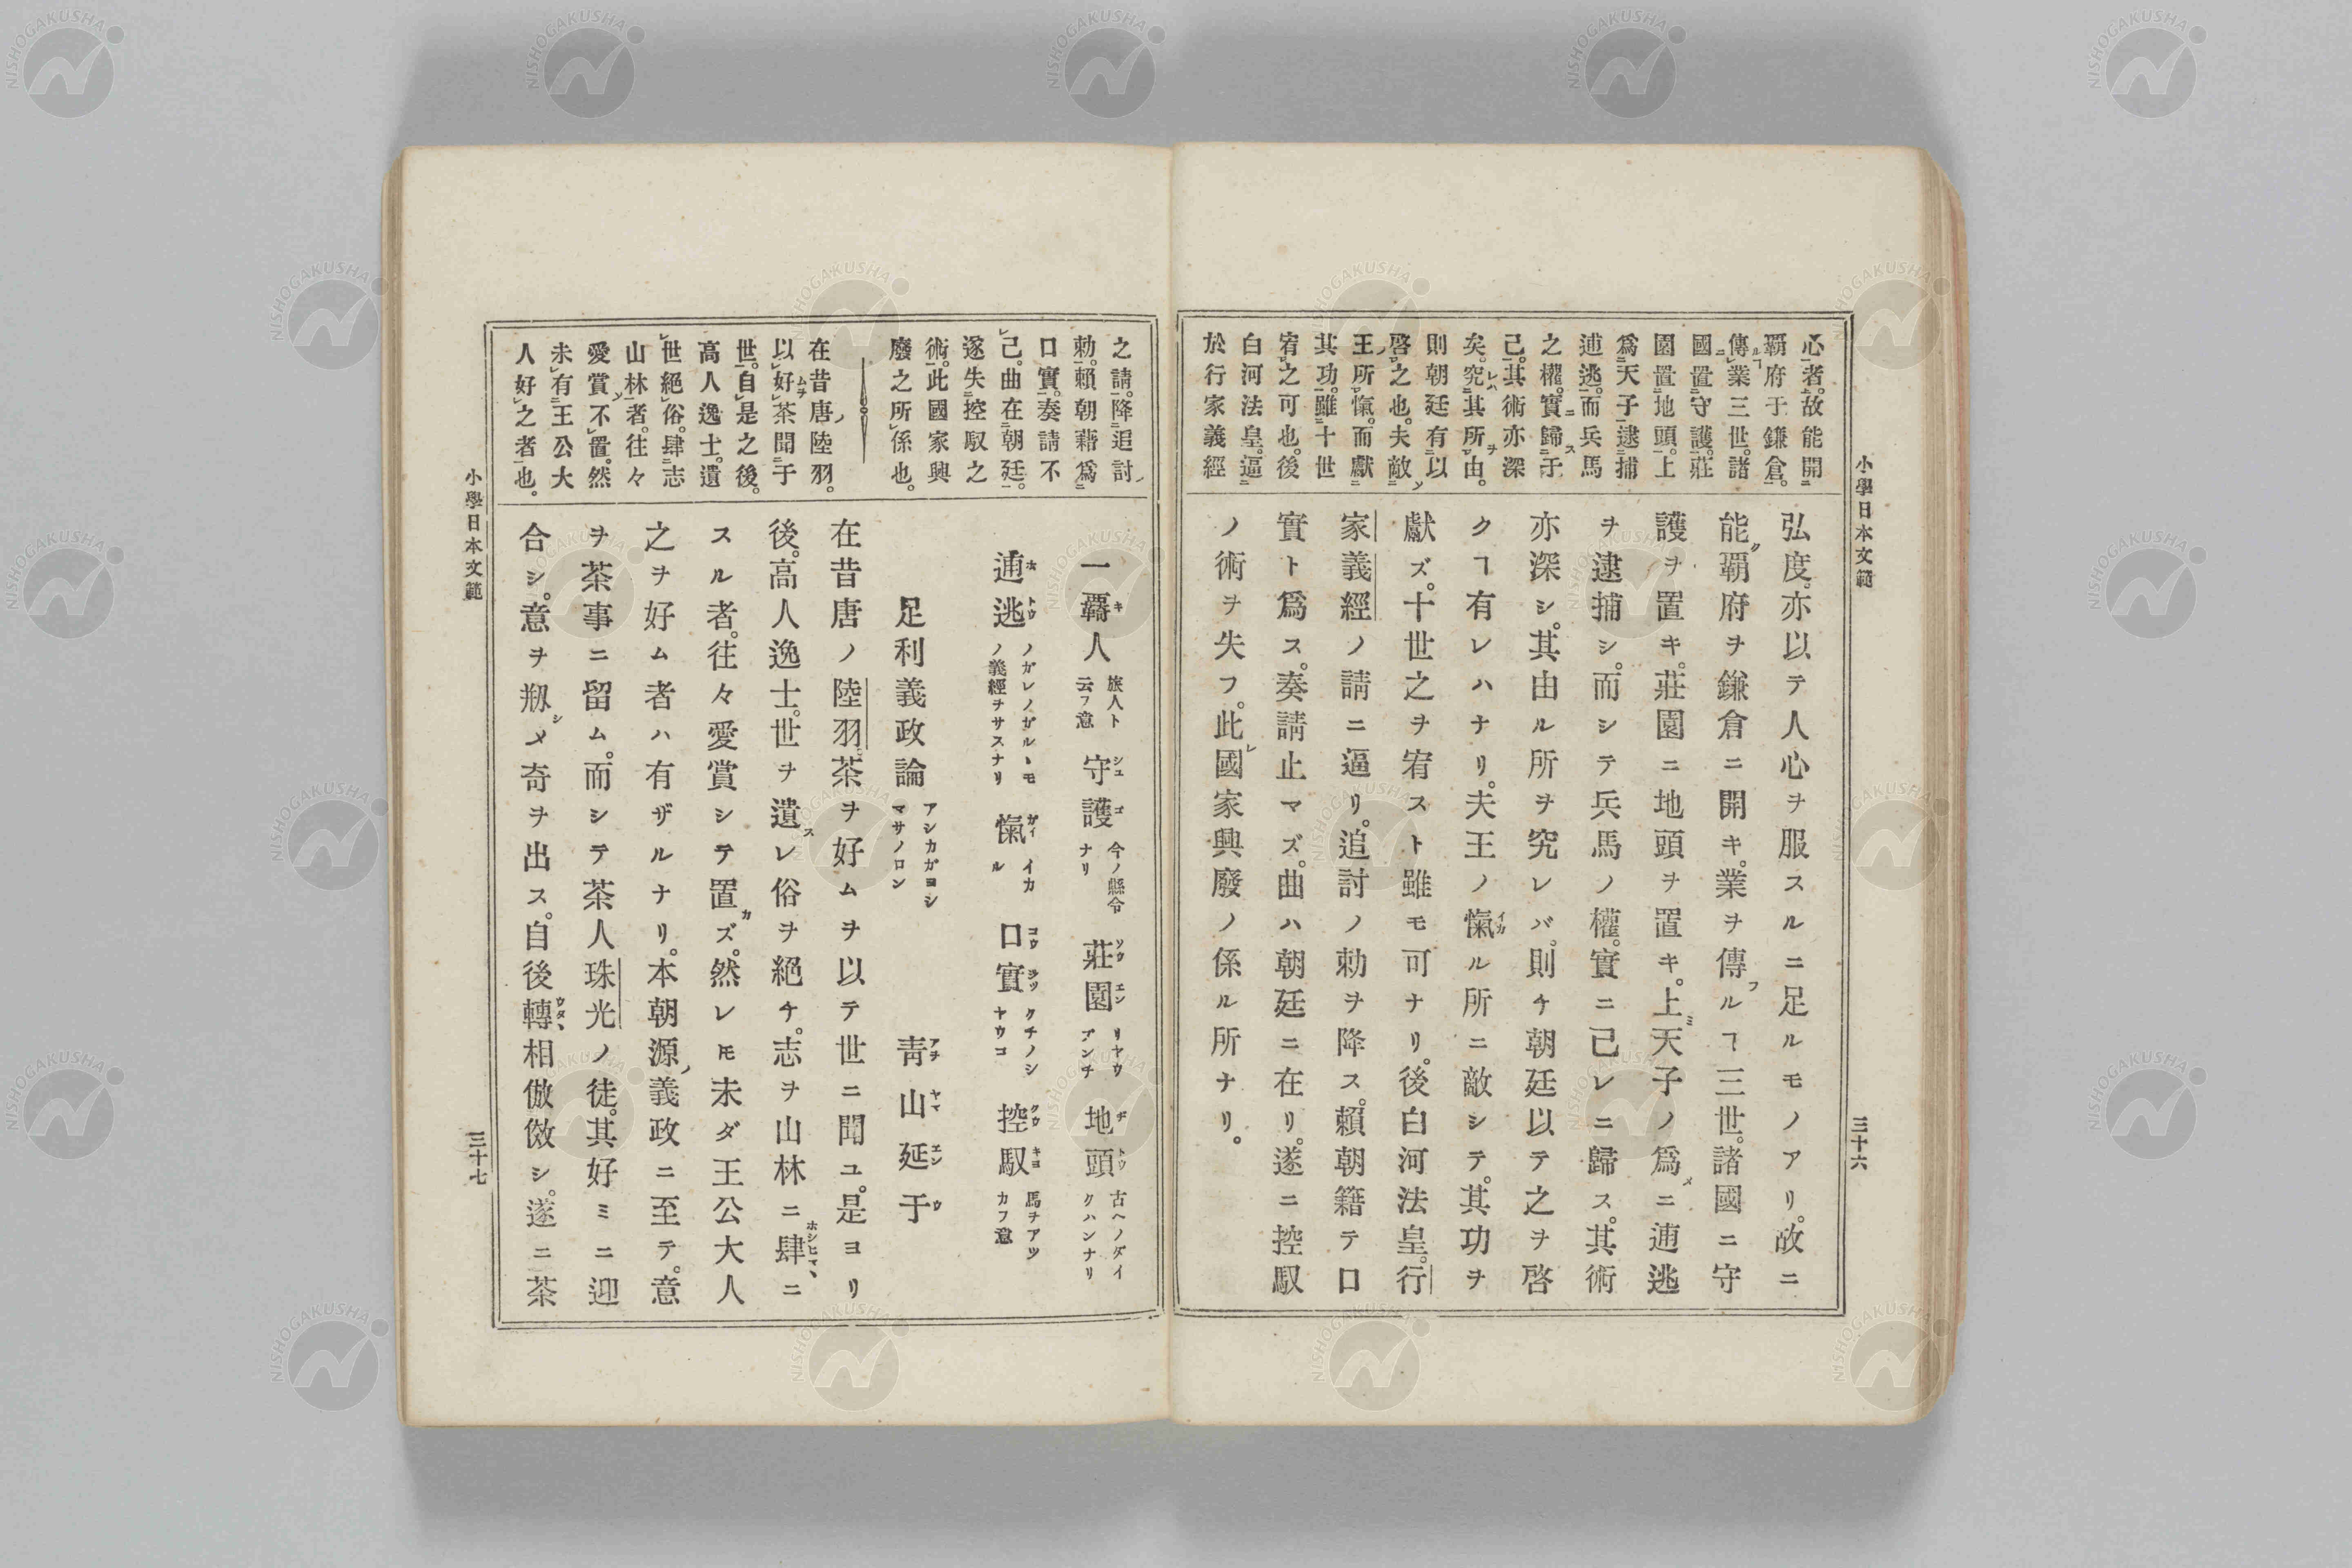 小學日本文範
三十六
心者。故能開
覇府于鎌倉。
傳業三世。諸
國置守護。莊
園置地頭。上
爲天子逮捕
逋逃。而兵馬
之權。實歸于
己。其術亦深
矣。究其所由。
則朝廷有以
啓之也。夫敵
王所愾。而獻
其功。雖十世
宥之可也。後
白河法皇。逼
於行家義經
弘度。亦以テ人心ヲ服スルニ足ルモノアリ。故ニ
能覇府ヲ鎌倉ニ開キ。業ヲ傳ルヿ三世。諸國ニ守
護ヲ置キ。莊園ニ地頭ヲ置キ。上天子ノ爲ニ逋逃
ヲ逮捕シ。而シテ兵馬ノ權。實ニ己レニ歸ス。其術
亦深シ。其由ル所ヲ究レバ。則チ朝廷以テ之ヲ啓
クヿ有レハナリ。夫王ノ愾ル所ニ敵シテ。其功ヲ
獻ズ。十世之ヲ宥スト雖モ可ナリ。後白河法皇。行
家義經ノ請ニ逼リ。追討ノ勅ヲ降ス。賴朝籍テ口
實ト爲ス。奏請止マズ。曲ハ朝廷ニ在リ。遂ニ控馭
ノ術ヲ失フ。此國家興廢ノ係ル所ナリ。
之請。降追討
勅。賴朝藉爲
口實。奏請不
己。曲在朝廷。
遂失控馭之
術。此國家興
廢之所係也。
在昔唐陸羽。
以好茶聞于
世。自是之後。
高人逸士。遺
世絕俗。肆志
山林者。往々
愛賞不置。然
未有王公大
人好之者也。
一覊人 旅人ト云フ意 守護 今ノ縣令ナリ 莊園 リヤウブンチ 地頭 古ヘノダイクハンナリ
逋逃 ノガレノガルヽモノ義經ヲサスナリ 愾 イカル 口實 クチノシヤウコ 控馭 馬ヲアツカフ意
足利義政論 アシカガヨシマサノロン 靑山延于
在昔唐ノ陸羽。茶ヲ好ムヲ以テ世ニ聞ユ。是ヨリ
後。高人逸士。世ヲ遺レ俗ヲ絕チ。志ヲ山林ニ肆ニ
スル者。往々愛賞シテ置ズ。然レ𪜈未ダ王公大人
之ヲ好ム者ハ有ザルナリ。本朝源義政ニ至テ。意
ヲ茶事ニ留ム。而シテ茶人珠光ノ徒。其好ミニ迎
合シ。意ヲ剏メ奇ヲ出ス。自後轉相倣傚シ。遂ニ茶
小學日本文範
三十七